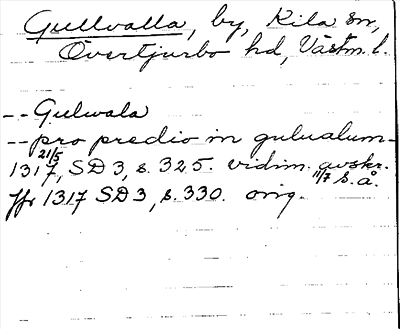 Gullvalla, by, Kila sn,
Övertjurbo hd, Västm. l.
-- Gulwala
-- pro predio in gulualum -
21/5
1317, SD 3, s. 325. vidim. avskr.
11/7 s. å.
Jfr 1317 SD 3, s. 330. orig.